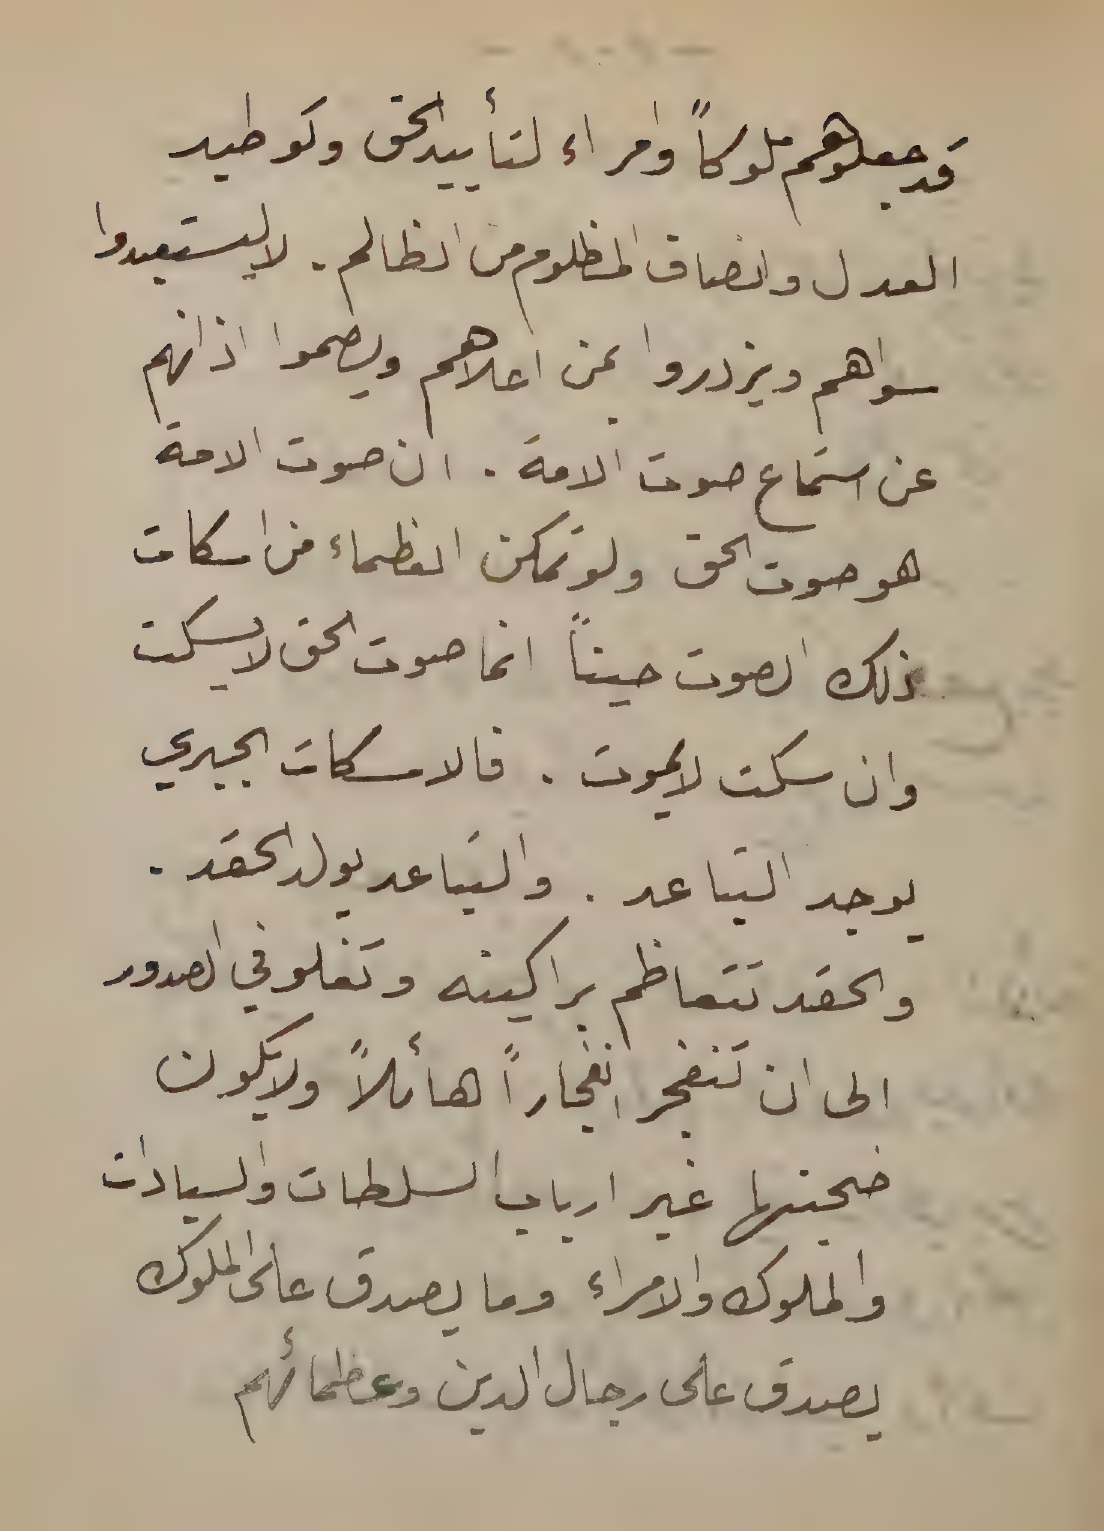 قد جعلوهم ملوكاً وامراء لتأييد الحق وتوطيد
العدل وانصاف المظلوم من الظالم. لا ليستعبدوا
سواهم ويزدروا بمن اعلاهم ويصموا اذانهم
عن استماع صوت الامة. ان صوت الامة
هو صوت الحق ولو تمكن العظماء من اسكات
ذلك الصوت حيناً انما صوت الحق لا يسكت
وان سكت لا يموت. فالاسكات الجبري
يوجد التباعد. والتباعد يولد الحقد.
والحقد تتعاظم براكينه وتغلو في الصدور
الى ان تنفجر انفجاراً هائلاً ولا يكون
ضحيتها غير ارباب السلطات والسيادات
والملوك والامراء وما يصدق على الملوك
يصدق على رجال الدين وعظمائهم